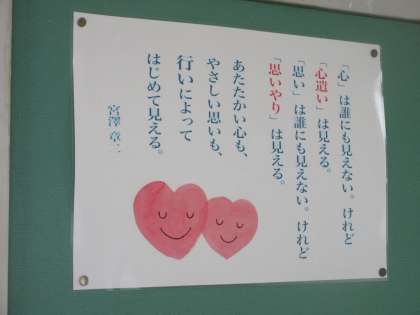 「心」は誰にも見えない。けれど
「心遣い」は見える。
「思い」は誰にも見えない。けれど
「思いやり」は見える。
あたたかい心も、
やさしい思いも、
行いによって
はじめて見える。
宮澤章二